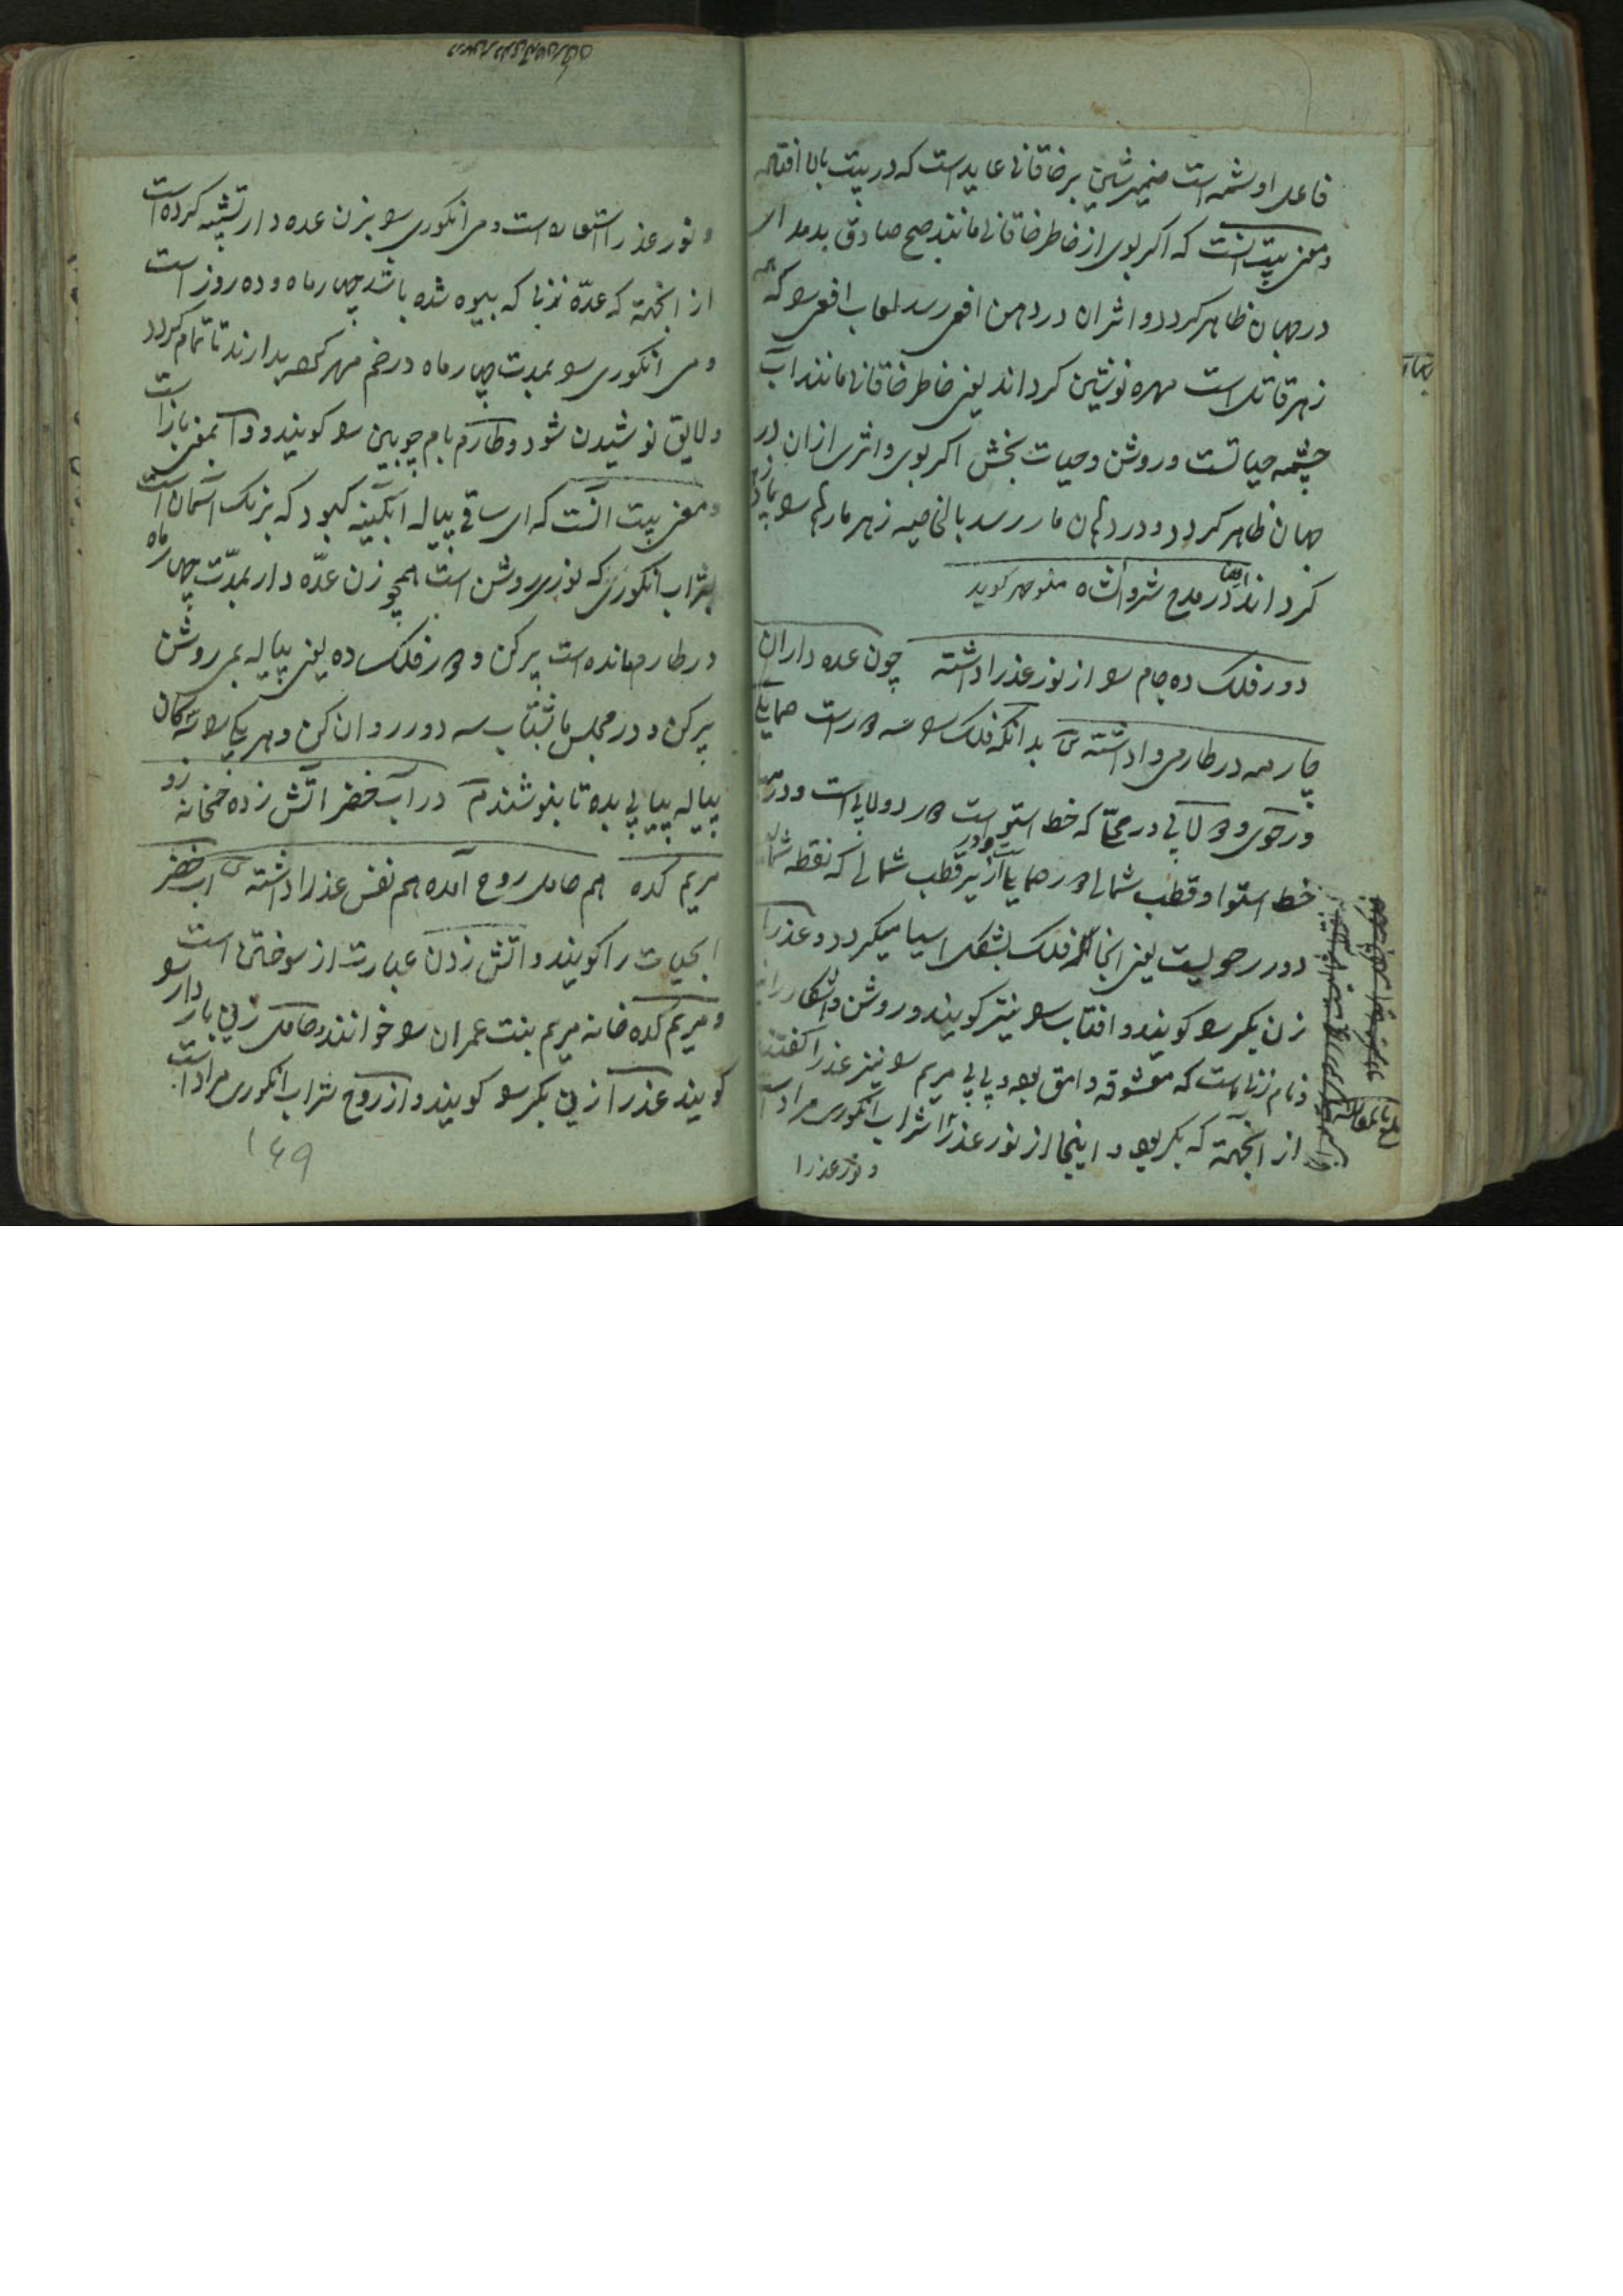 فاعل او نشمه است ضمیر شین بر خاقانی عاید است که در بیت بالا افتاده
و معنی بیت انست که اکر بوی از خاطر خاقانی مانند صبح صادق بدمد
در جهان ظاهر کردد و اثر ان در دهن افعی رسد لعاب افعی را که
زهر قاتل است مهره نوشین کرداند یعنی خاطر خاقانی مانند آب
چشمه حیاتست و روشن و حیات بخش اکر بوی و اثری از ان در
جهان ظاهر کردد و در دهان مار رسد بالخاصیه زهر مار را
کرداند ایضا در مدح شروانشاه منوچهر کوید
دور فلک ده جام را از نور عذرا داشته چون عده داران
چار مه در طارمی وا داشته بدانکه فلک را سه دور است حمایلی
و رحوی و دولابی در محلی که خط استواست دور دولابی است و در
خط استوا و قطب شمالی دور حمایلی است و در زیر قطب شمالی که نقطه
دور رحویست یعنی انجا فلک بشکل اسیا میکردد و عذرا
زن بکر را کویند و افتاب را نیز کویند و روشن و اشکار را
و نام زنی است که معشوقه وامق بود و بی بی مریم را نیز عذرا کفتند
از آنجهة که بکر بود و اینجا از نور عذرا شراب انکوری مراد است
و نور عذرا
و نور عذرا استعاره است و می انکوری را بزن عده دار تشبیه کرده است
از انجهة که عدّه زنی که بیوه شده باشد چهار ماه و ده روز است
و می انکوری را بمدت چهار ماه در خم مهر کرده بدارند تا تمام کردد
و لایق نوشیدن شود و طارم بام چوبین را کویند و وا بمعنی باز است
و معنی بیت آنست که ای ساقی پیاله آبکینه کبود که برنک آسمان است
بشراب انکوری که نوری روشن است همچو زن عدّه دار بمدّت چهار ماه
در طارم مانده است پر کن و دور فلک ده یعنی پیاله بمی روشن
پر کن و در مجلس ما شتاب سه دور روان کن و هر یک را سه کان
پیاله پیاپی بده تا بنوشند در آب خضر آتش زده خمخانه زو
مریم کده هم حامل روح آمده هم نفس عذرا داشته آب خضر
ابحیات را کویند و اتش زدن عبارت از سوختن است
و مریم کده خانه مریم بنت عمران را خوانند و حامل زن باردار را
کویند عذرا زن بکر را کویند و از روح شراب انکوری مراد است
۱۴۹